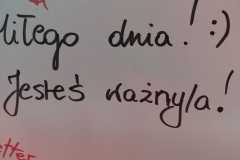 iłego dnia! :)
Jesteś ważny/a!
etter